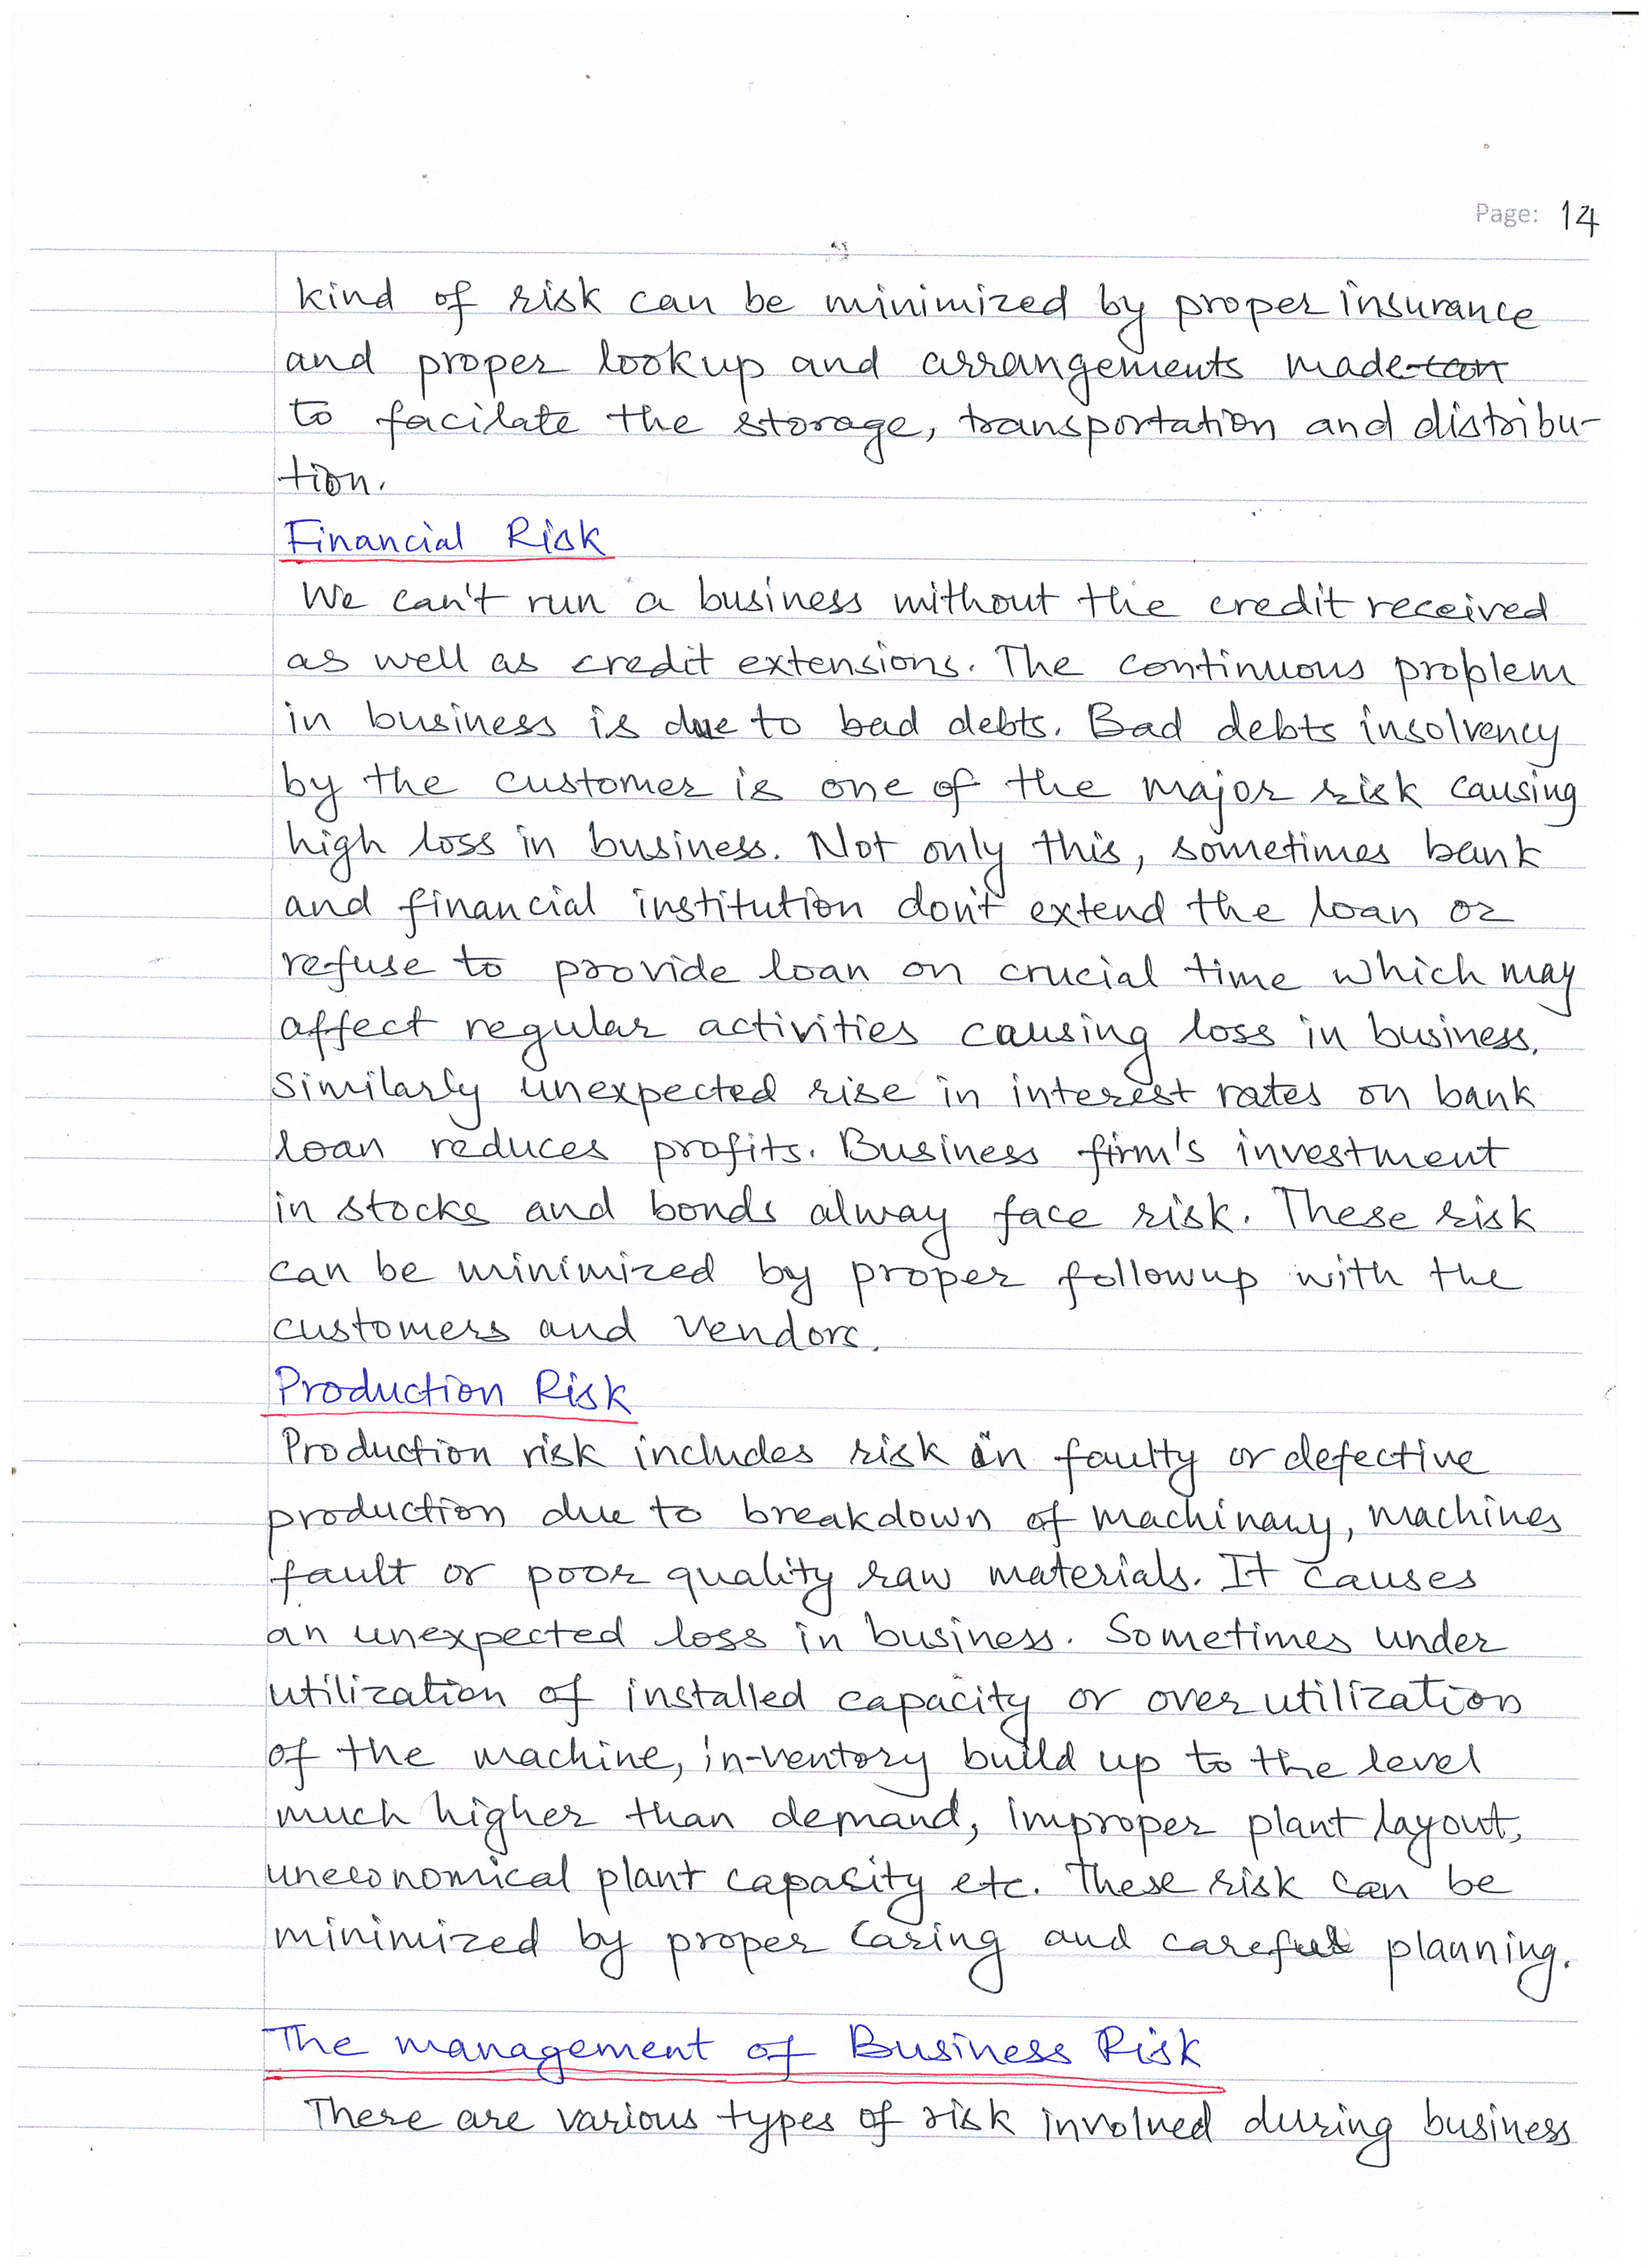 Page: 14
kind of risk can be minimized by proper insurance
and proper lookup and arrangements made
to facilate the storage, transportation and distribu-
tion.
Financial Risk
We can't run a business without the credit received
as well as credit extensions. The continuous problem
in business is due to bad debts. Bad debts insolvency
by the customer is one of the major risk causing
high loss in business. Not only this, sometimes bank
and financial institution don't extend the loan or
refuse to provide loan on crucial time which may
affect regular activities causing loss in business.
Similarly unexpected rise in interest rates on bank
loan reduces profits. Business firm's investment
in stocks and bonds alway face risk. These risk
can be minimized by proper followup with the
customers and vendors.
Production Risk
Production risk includes risk in faulty or defective
production due to breakdown of machinary, machines
fault or poor quality raw materials. It causes
an unexpected loss in business. Sometimes under
utilization of installed capacity or over utilization
of the machine, in-ventory build up to the level
much higher than demand, improper plant layout,
uneconomical plant capasity etc. These risk can be
minimized by proper caring and careful planning.
The management of Business Risk
There are various types of risk involved during business